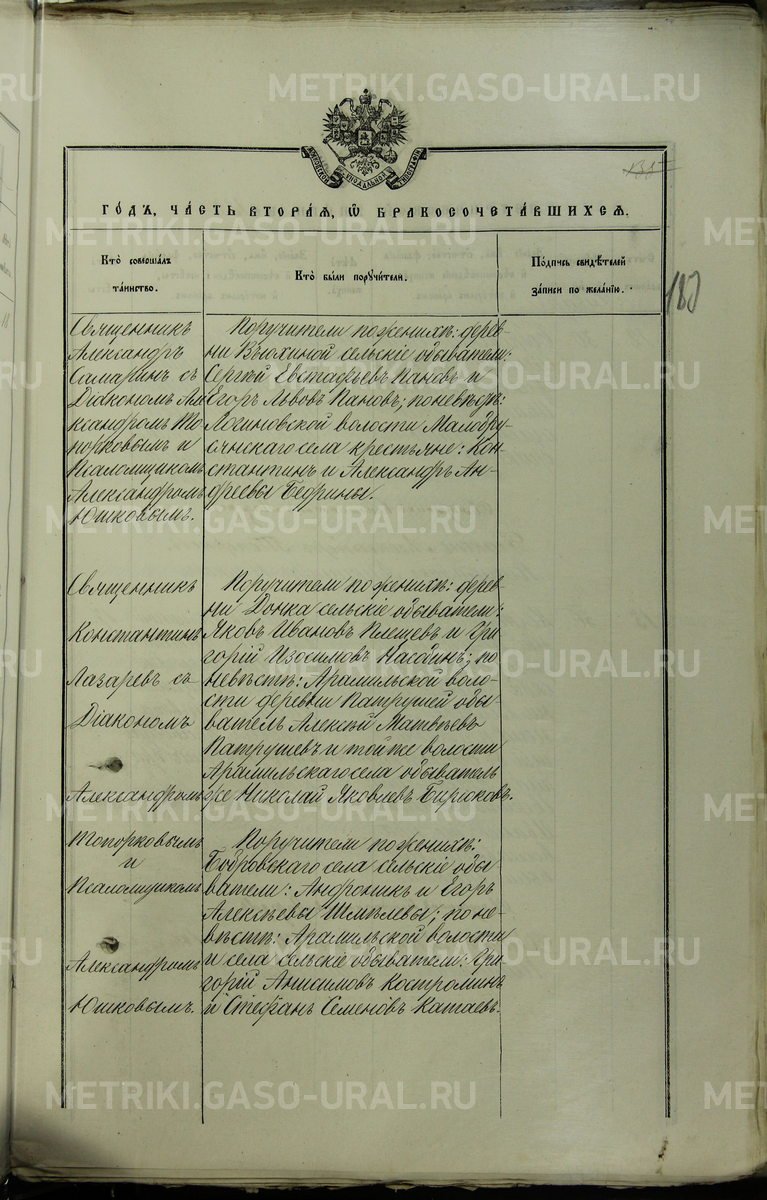 ГОДЪ, ЧАСТЬ ВТОРАЯ, Ѡ БРАКОСОЧЕТАВШИХСЯ.
Кто совершалъ таинство.
Кто были поручители.
Подпись свидѣтелей записи по желанію.
183
Священникъ
Александръ
Самаринъ съ
Діакономъ Але
ксандромъ То
порковымъ и
Псаломщикомъ
Александромъ
Юшковымъ.
Поручители по женихѣ: дерев-
ни Вьюхиной сельскіе обыватели:
Сергѣй Евстафьевъ Пановъ и
Егоръ Львовъ Пановъ; по невѣстѣ:
Логиновской волости Малобру-
сянскаго села крестьяне: Кон-
стантинъ и Александръ Ан-
дреевы Бедрины.
Священникъ
Константинъ
Лазаревъ съ
Діакономъ
Александромъ
Топорковымъ
и
Псаломщикомъ
Александромъ
Юшковымъ.
Поручители по женихѣ: дерев
ни Донка сельскіе обыватели:
Яковъ Ивановъ Плещевъ и Гри
горій Изосимовъ Насо́нинъ; по
невѣстѣ: Арамильской воло-
сти деревни Патрушей обы
ватель Алексѣй Матвѣевъ
Патрушевъ и той же волости
Арамильскаго села обыватель
же Николай Яковлевъ Бирюковъ.
Поручители по женихѣ:
Бобровскаго села сельскіе обы
ватели: Андроникъ и Егоръ
Алексѣевы Шмелевы; по не-
вѣстѣ: Арамильской волости
и села сельскіе обыватели: Гри
горій Анисимовъ Костроминъ
и Стефанъ Семеновъ Катаевъ.
METRIKI.GASO-URAL.RU